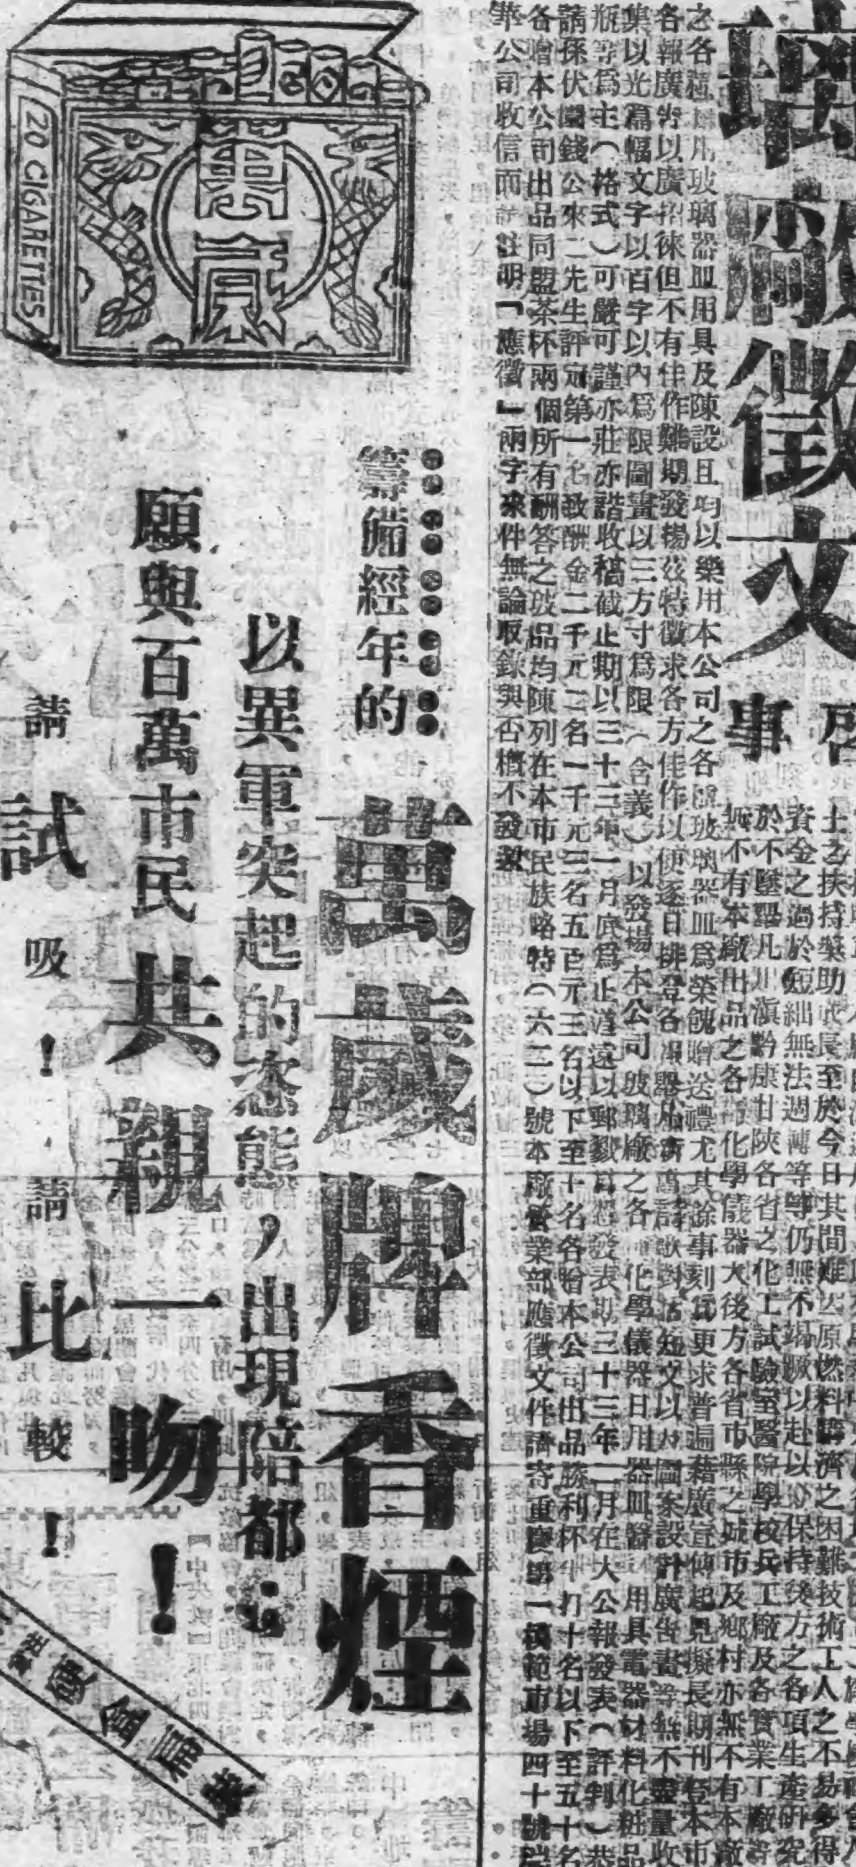 徵文
啓事
士之扶持獎助 長至於今日其間難 原燃料購濟之困難技術工人之不易多得
資金之過於短絀無法週轉等等仍無不竭蹶以赴以 保持後方之各項生產研究
於不墜舉凡川滇黔康甘陝各省之化工試驗室醫院學校兵工廠及各實業工廠等
無不有本廠出品之各 化學儀器大後方各省市縣之城市及鄉村亦無不有本廠
之各種 玻璃器皿用具及陳設且均以樂用本公司之各 玻璃器皿爲榮餽贈送禮尤其餘事刻爲更求普遍藉廣宣傳起見擬長期刊登本市
各報廣告以廣招徠但不有佳作難期發揚茲特徵求各方佳作以便逐日排登各 對話短文以及圖案設計廣告畫等無不盡量收
集以光篇幅文字以百字以內爲限圖畫以三方寸爲限(含義)以發揚本公司玻璃廠之各 化學儀器日用器皿醫 用具電器材料化粧品
瓶等爲主(格式)可嚴可謹亦莊亦諧收稿截止期以三十三年一月底爲止道遠以郵戳 發表期三十三年二月在大公報發表(評判)恭
請孫伏園錢公來二先生評定第一名致酬金二千元二名一千元三名五百元三名以下至十名各贈本公司出品勝利杯半打十名以下至五十名
各贈本公司出品同盟茶杯兩個所有酬答之玻品均陳列在本市民族路特(六二)號本廠營業部應徵文件請寄重慶第一模範市場四十號
華公司收信面 註明「應徵」兩字來件無論取錄與否概不發還
20 CIGARETTES
萬歲
籌備經年的
萬歲牌香煙
以異軍突起的姿態，出現陪都；
願與百萬市民共親一吻！
請試吸！請比較！
硬盒